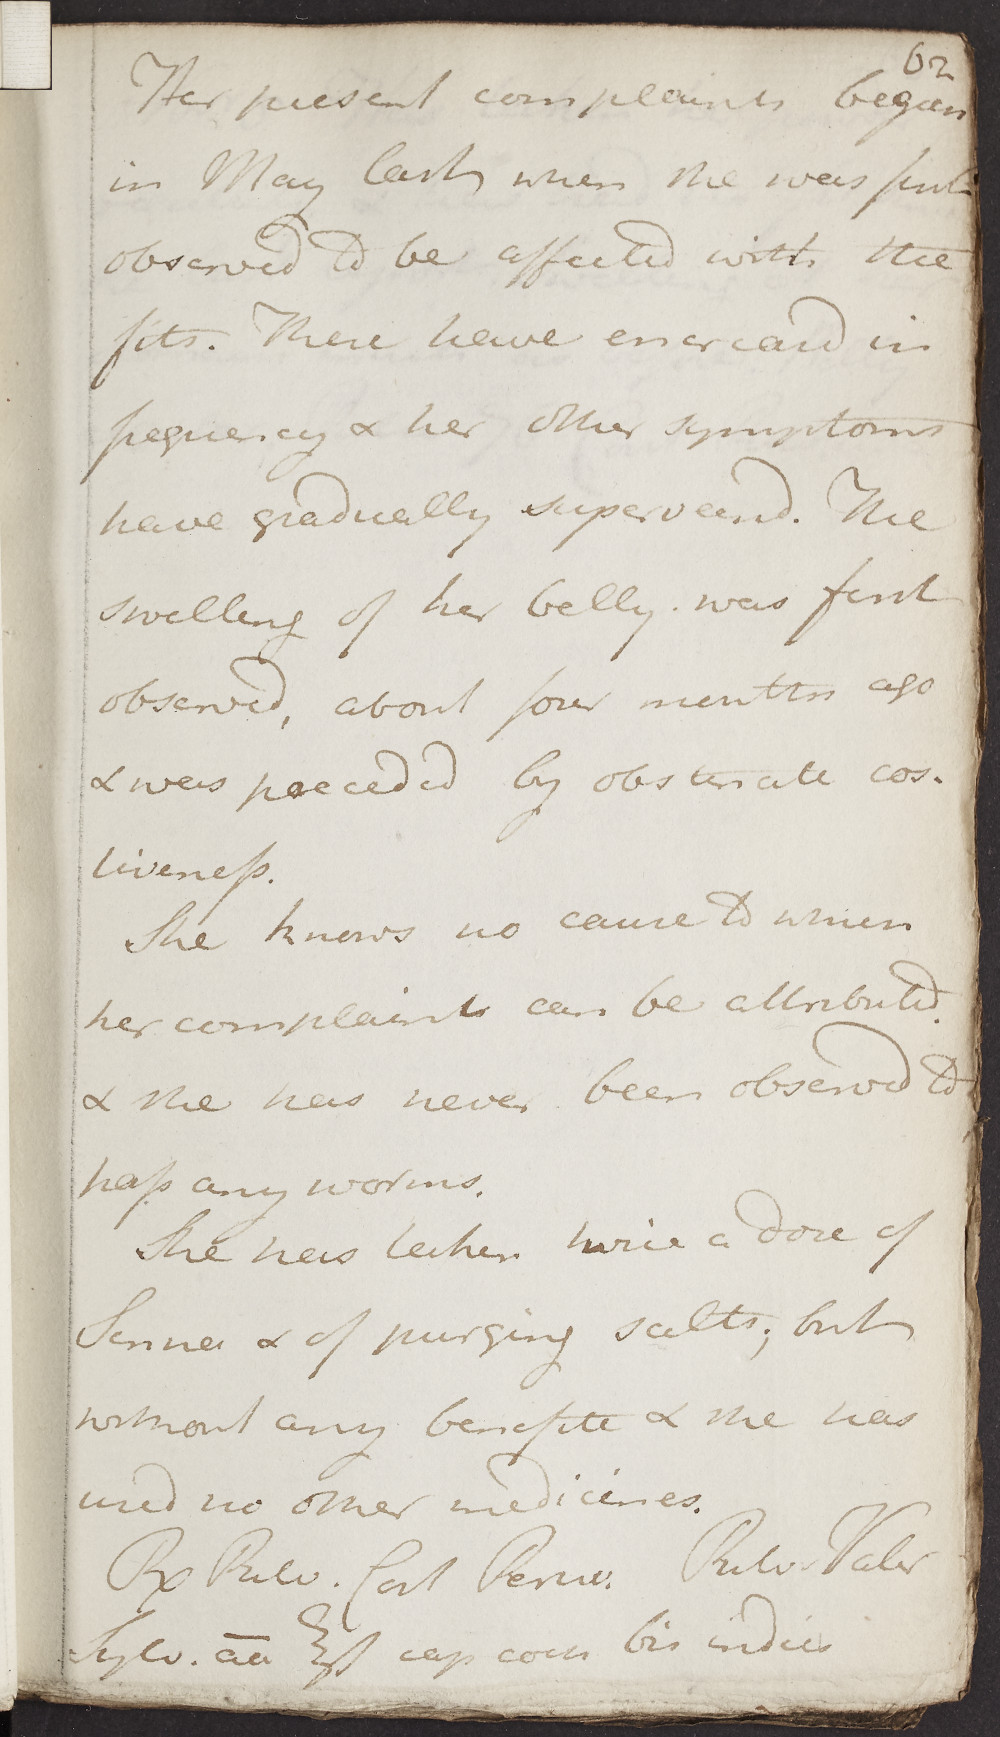 62
Her present complaints began
in May last when she was first
observed to be affected with the
fits. These have encreased in
frequency & her other symptoms
have gradually superveened. The
swelling of her belly was first
observed, about four months ago
& was preceded by obstinate cos-
tiveness.
She knows no cause to which
her complaints can be attributed.
& she has never been observed to
pass any worms.
She has taken twice a dose of
Senna & of purging salts; but
without any benefite & she has
used no other medicines.
℞ Pulv. Cort Peruv. Pulv. Valer
Sylv. aa ʒſs cap com bis indies